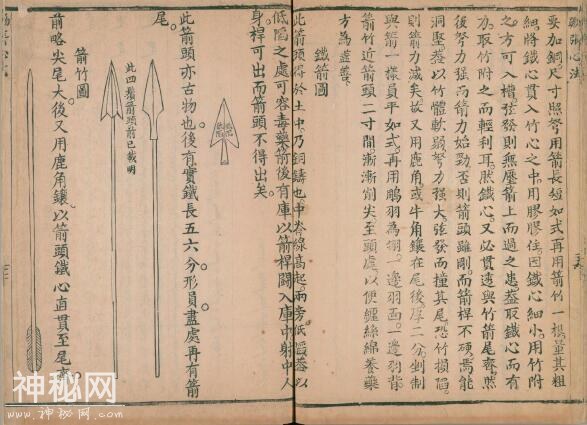 要加銅尺寸照弩用箭長短如式再用箭竹一根量其粗
細將鐵心貫入竹心之中用膠膠住因鐵心細小用竹附
之方可入槽弦發則無壓箭上而過之患蓋取鐵心而有
力取竹附之而輕利耳然鐵心又必貫造與竹箭尾齊然
後弩力强而箭力始勁否則箭頭雖剛而箭桿不硬焉能
洞堅蓋以竹體軟弱弩力强大弦發而撞其尾恐竹損陷
則箭力減矣故又用鹿角或牛角鑲在尾後厚二分剉制
與箭一樣員平如式再用鵰羽為翎一邊羽面一邊羽背
箭竹近箭頭二寸間漸漸削尖至頭處以便纏絲綿養藥
方為盡善
鐵箭圖
此箭頭得於土中乃銅鑄也中脊線高起兩旁低陷蓋以
低陷之處可容毒藥箭後有庫以箭桿鬪入庫中射中人
身桿可出而箭頭不得出矣
此箭頭亦古物也後有實鐵長五六分形員盡處再有箭
尾
此四鬍箭頭前已載明
箭竹圖
前略尖尾大後又用鹿角鑲以箭頭鐵心直貫至尾齊
神秘网
www.shenmiwang.com
神秘网